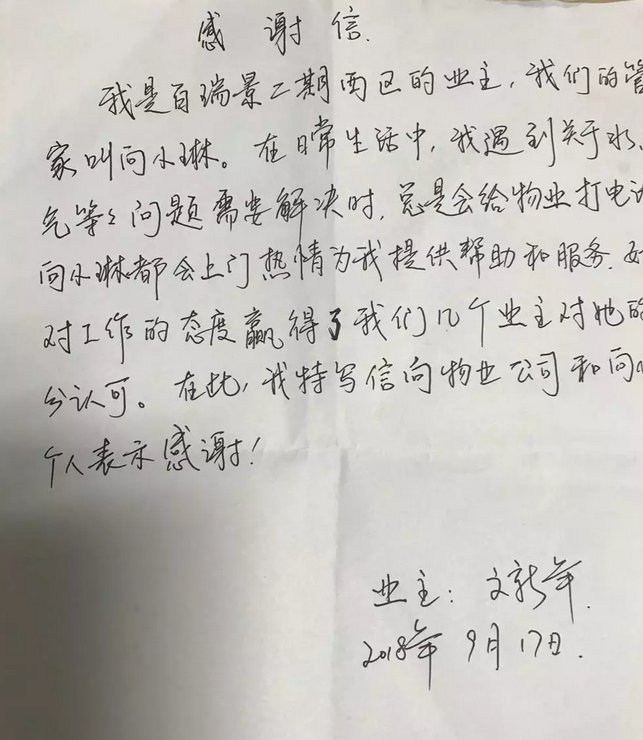 感谢信.
我是百瑞景二期西区的业主,我们的管
家叫向小琳。在日常生活中,我遇到关于水、
气等等问题需要解决时,总是会给物业打电话
向小琳都会上门热情为我提供帮助和服务.
对工作的态度赢得了我们几个业主对她的
分认可。在此,我特写信向物业公司和向小
个人表示感谢!
业主:文新年.
2018年9月17日.